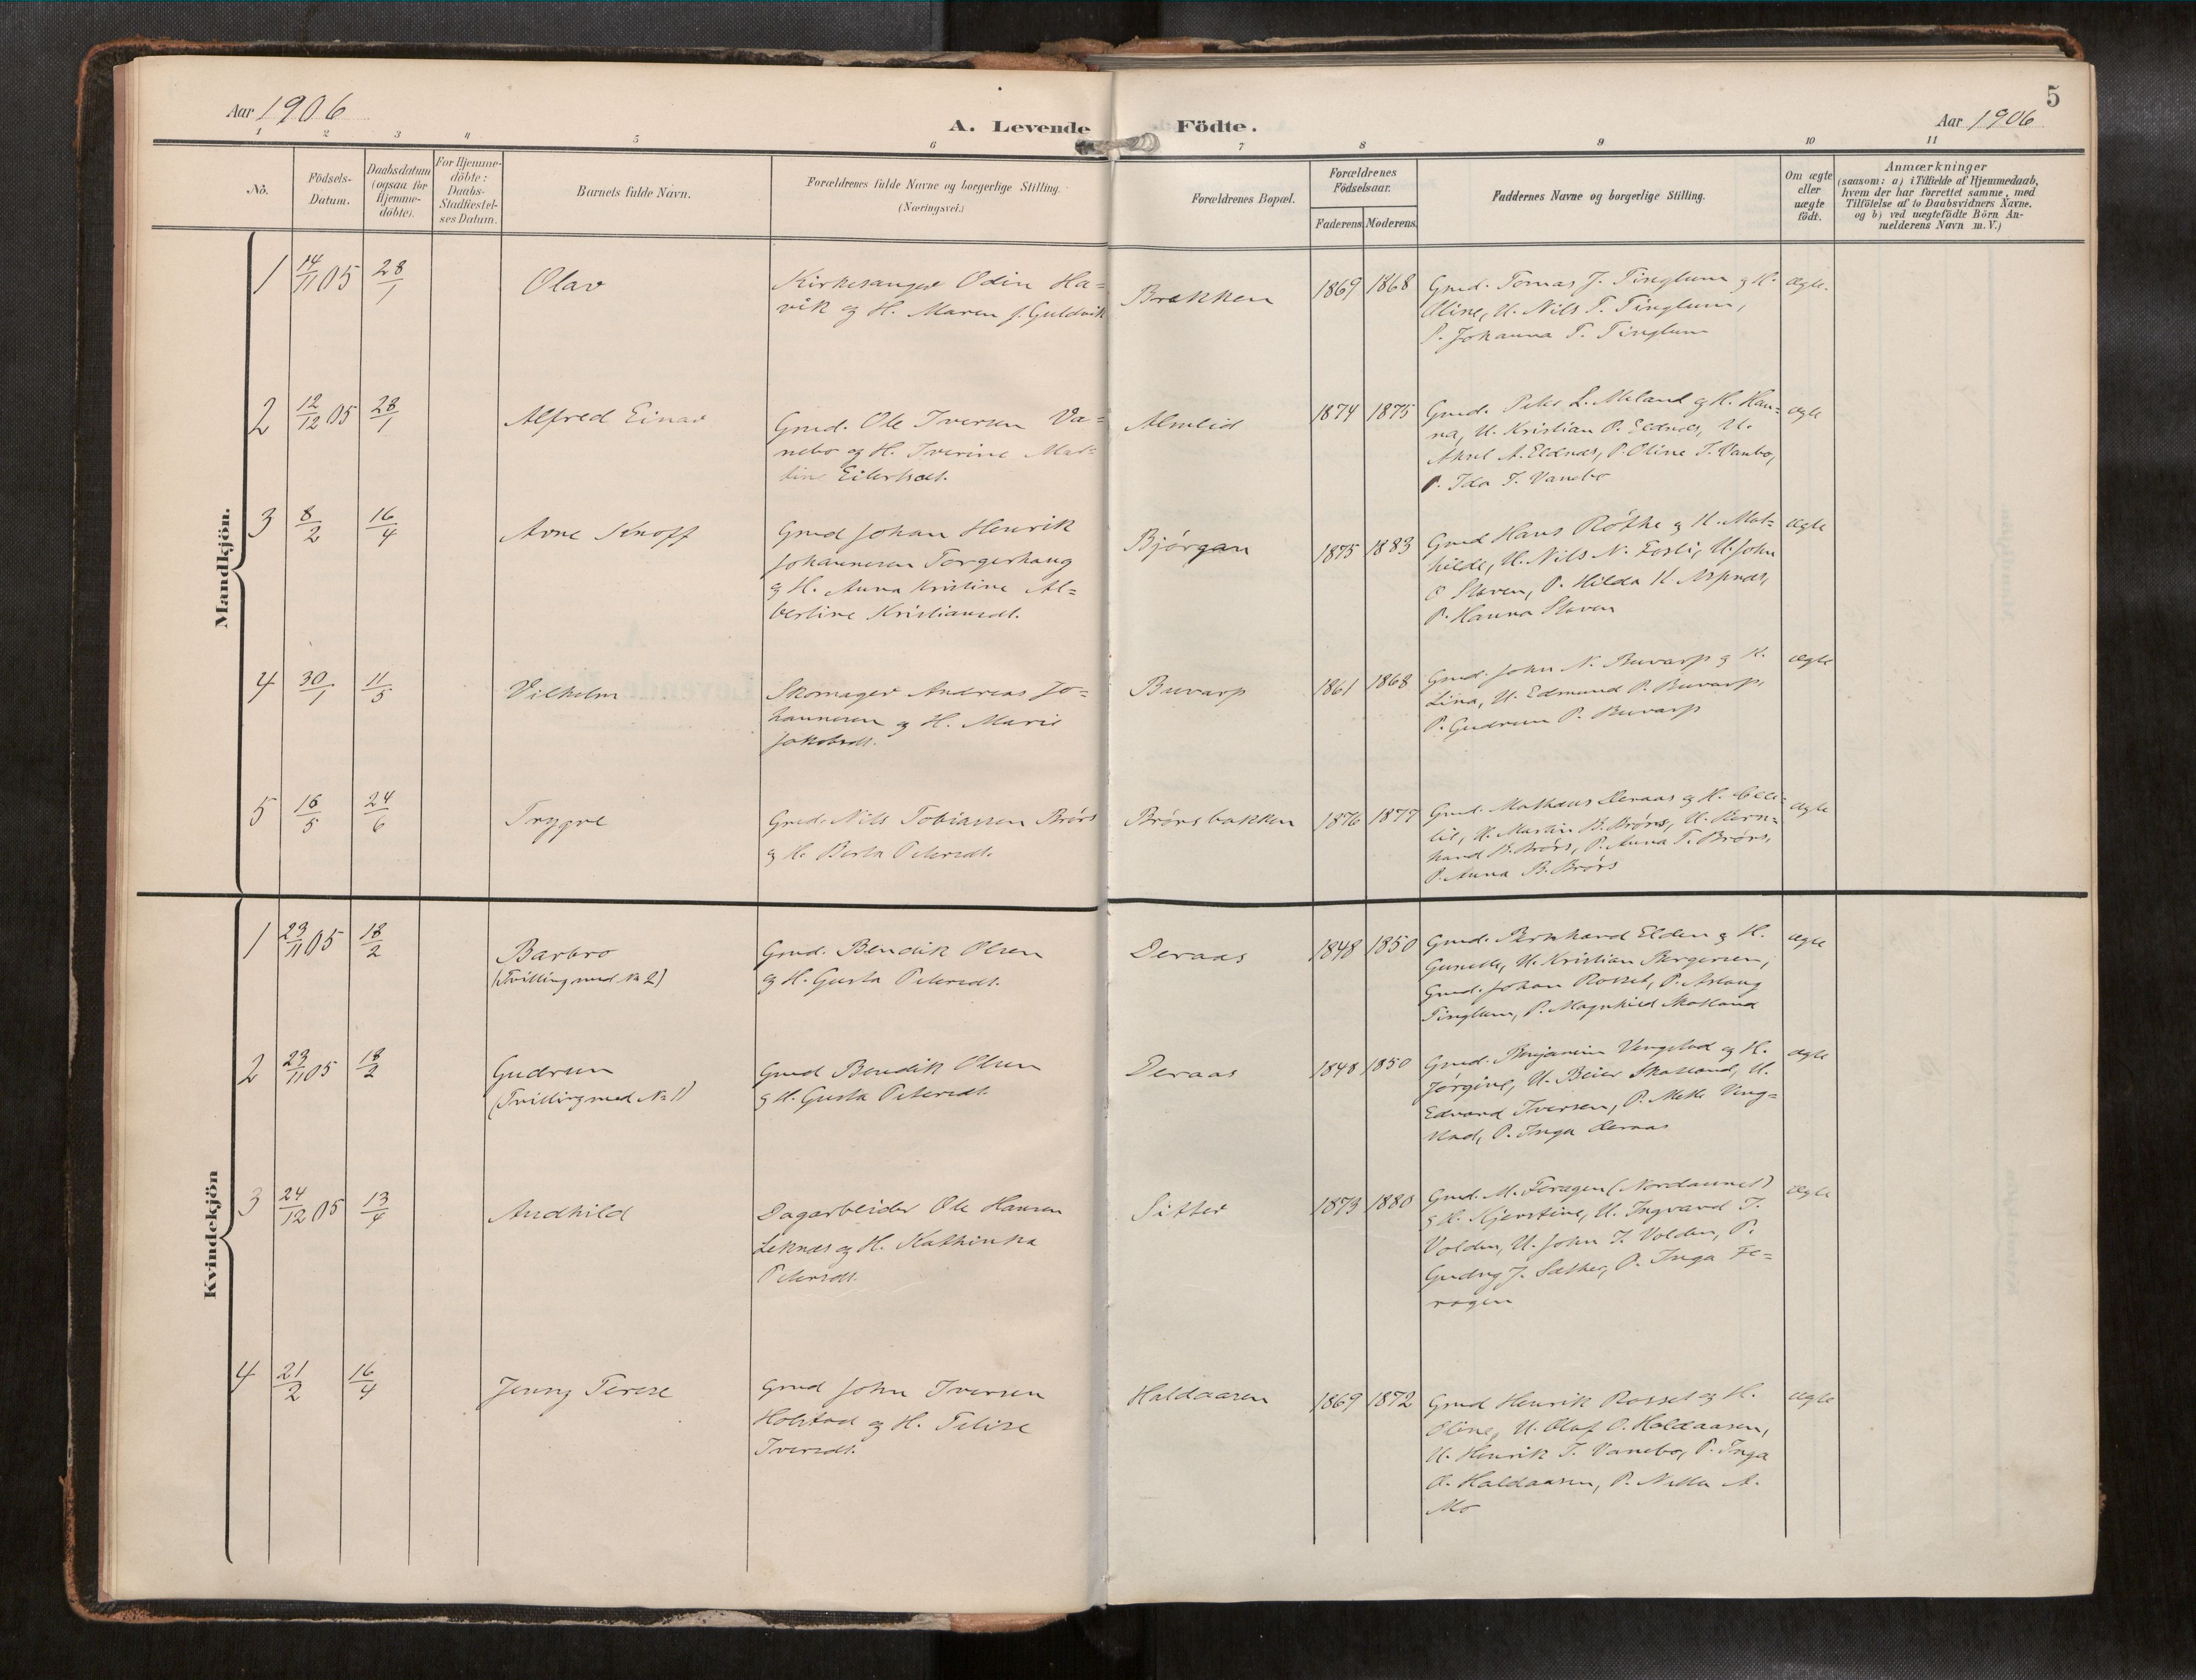 Aar 1906
A. Levende Födte.
5
Aar 1906
1 2 3 4 5 6 7 8 9 10 11
No.
Födsels-
Datum.
Daabsdatum
(ogsaa for
Hjemme-
döbte).
For Hjemme-
döbte:
Daabs-
Stadfæstel-
ses Datum.
Barnets fulde Navn.
Forældrenes fulde Navne og borgerlige Stilling.
(Næringsvei.)
Forældrenes Bopæl.
Forældrenes
Födselsaar.
Faderens. Moderens.
Faddernes Navne og borgerlige Stilling.
Om ægte
eller
uægte
födt.
Anmærkninger
(saasom: a) i Tilfælde af Hjemmedaab,
hvem der har forrettet samme, med
Tilföielse af to Daabsvidners Navne,
og b) ved uægtefödte Börn An-
melderens Navn m. V.)
Mandkjön.
1 14/11 05 28/1 Olav
Kirkesanger Odin Ha=
vik og H. Maren f. Guldvik
Brækken 1869 1868
Gmd. Tomas J. Tinglum og H.
Oline, U. Nils T. Tinglum,
P. Johanna T. Tinglum
ægte.
2 12/12 05 28/1 Alfred Einar
Gmd. Ole Iversen Va=
nebo og H. Iverine Mar=
tine Eilertsdt.
Almlid 1874 1875
Gmd. Peter L. Meland og H. Han=
na, U. Kristian P. Eldnes, U.
Aksel A. Eldnes, P. Oline I. Vanebo,
P. Ida I. Vanebo
ægte
3 8/2 16/4 Arne Knoff
Gmd Johan Henrik
Johannesen Torgershaug
og H. Anna Kristine Al=
bertine Kristiansdt.
Bjørgan 1875 1883
Gmd Hans Røthe og H. Mat=
hilde, U. Nils N. Fosli, U. John
O Staven, P. Hilda H Aspnes,
P. Hanna Staven
ægte
4 30/1 11/5 Vilhelm
Skomager Andreas Jo=
hannesen og H. Marie
Jakobsdt.
Buvarp 1861 1868
Gmd. John N. Buvarp og H.
Lina, U. Edmund P. Buvarp,
P. Gudrun P. Buvarp
ægte
5 16/5 24/6 Trygve
Gmd. Nils Tobiassen Brørs
og H. Berta Petersdt.
Brørsbakken 1876 1877
Gmd. Mathæus Deraas og H. Ceci=
lie, U. Martin B. Brørs, U. Bern=
hard B. Brørs, P. Anna T. Brørs,
P. Anna B. Brørs
ægte
Kvindekjön
1 23/11 05 18/2 Barbro
(Tvilling med No 2)
Gmd. Bendik Olsen
og H. Gusta Petersdt.
Deraas 1848 1850
Gmd. Bernhard Elden og H.
Gunelle, U. Kristian Bergersen,
Gmd. Johan Rosset, P. Aslaug
Tinglum, P. Magnhild Skatland
ægte
2 23/11 05 18/2 Gudrun
(Tvilling med No 1)
Gmd Bendik Olsen
og H. Gusta Petersdt.
Deraas 1848 1850
Gmd. Benjamin Vengstad og H.
Jørgine, U. Beier Skatland, U.
Edvard Iversen, P. Mette Veng=
stad, P. Inga Deraas
ægte
3 24/12 05 13/4 Audhild
Dagarbeider Ole Hansen
Leknes og H. Kathinka
Petersdt.
Sitter 1873 1880
Gmd. M. Feragen (Nordaunet)
og H. Kjerstine, U. Ingvard I.
Volden, U. John I. Volden, P.
Gudny J. Sæther, P. Inga Fe=
ragen
ægte
4 21/2 16/4 Jenny Terese
Gmd John Iversen
Holstad og H. Telise
Iversdt.
Haldaasen 1869 1872
Gmd Henrik Rosset og H.
Oline, U. Olaf O. Haldaasen,
U. Henrik I. Vanebo, P. Inga
O. Haldaasen, P. Nella A.
Mo
ægte